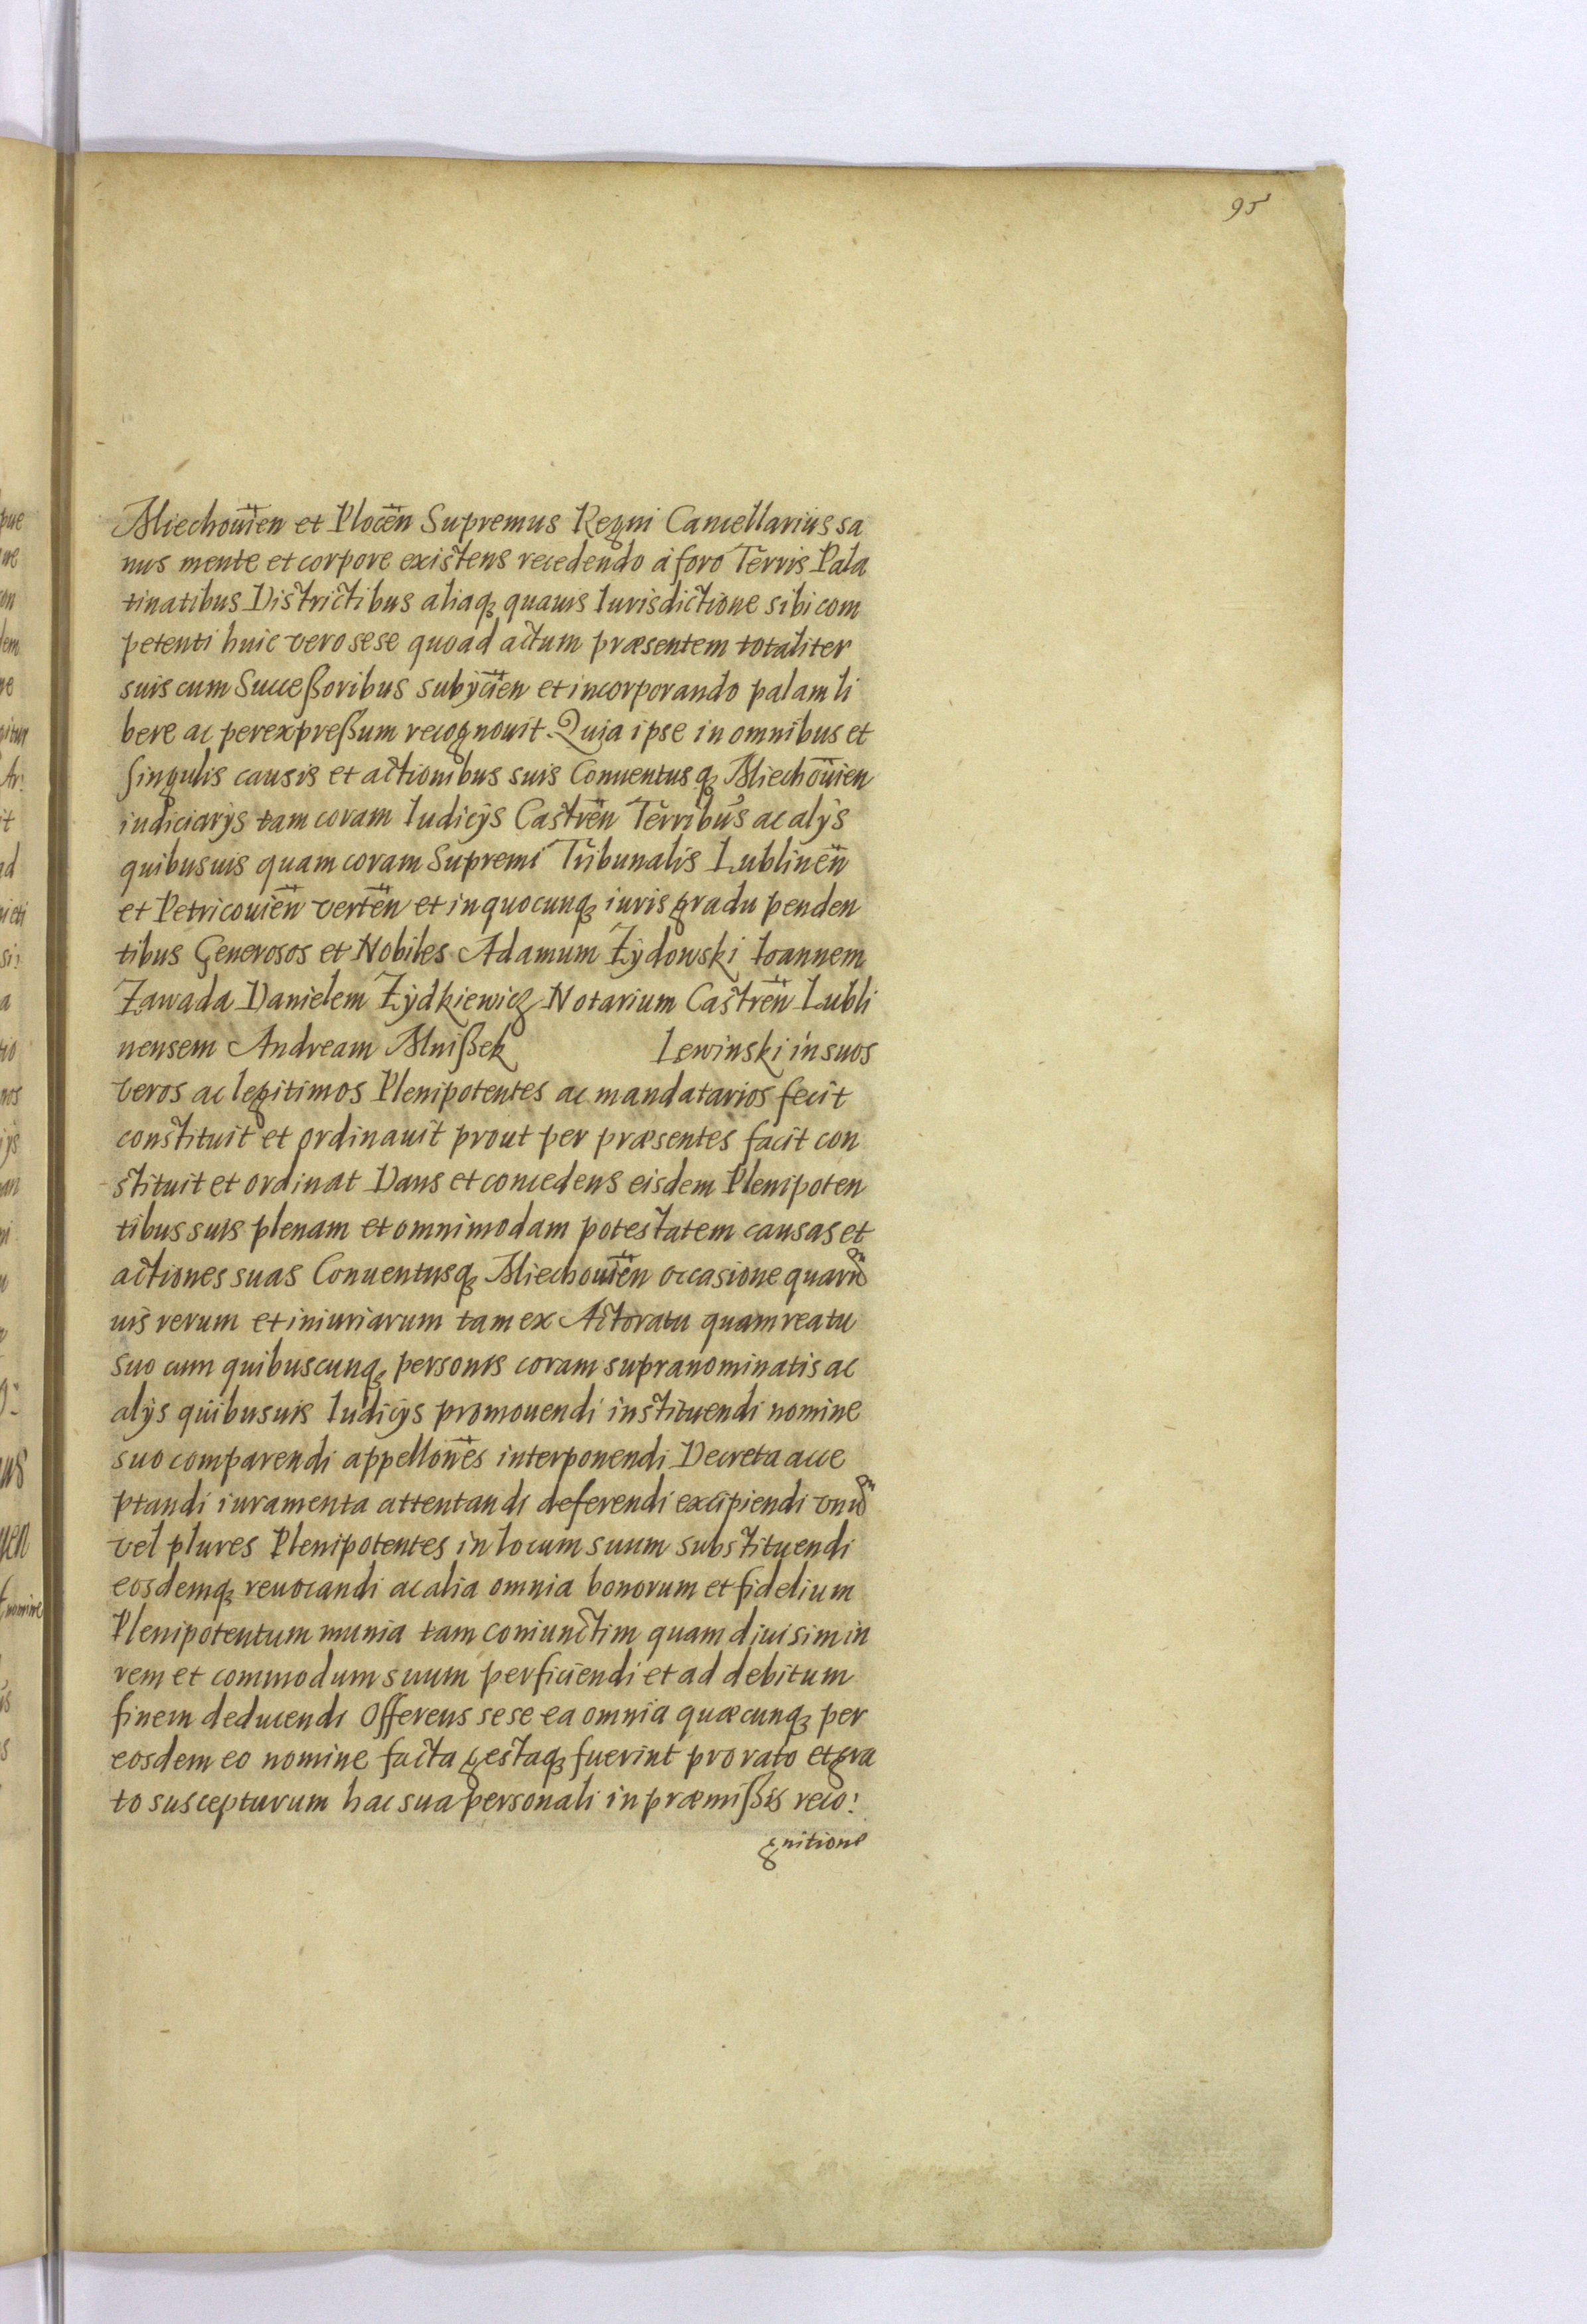 95
Miechouien et Plocen Supremus Regni Cancellarius sa
nus mente et corpore existens recedendo á foro Terris Pala
tinatibus Districtibus aliaq quauis Iurisdictione sibi com
petenti huic vero sese quoad actum præsentem totaliter
suis cum Succeßoribus subÿcien et incorporando palam li
bere ac per expreßum recognouit. Quia ipse in omnibus et
singulis causis et actionibus suis Conuentusq Miechouien
iudiciarÿs tam coram Iudicÿs Castren Terribus ac alÿs
quibusuis quam coram Supremi Tribunalis Lublinen
et Petricouien verten et in quocunq iuris gradu penden
tibus Generosos et Nobiles Adamum Żydowski Ioannem
Zawada Danielem Żydkiewicz Notarium Castren Lubli
nensem Andream Mnißek Lewinski in suos
veros ac legitimos Plenipotentes ac mandatarios fecit
constituit et ordinauit prout per præsentes facit con
stituit et ordinat Dans et concedens eisdem Plenipoten
tibus suis plenam et omnimodam potestatem causas et
actiones suas Conuentusq Miechouien occasione quarum
uis rerum et iniuriarum tam ex Actoratu quam reatu
suo cum quibuscunq personis coram supranominatis ac
alÿs quibusuis Iudicÿs promouendi instituendi nomine
suo comparendi appellones interponendi Decreta acce
ptandi iuramenta attentandi deferendi excipiendi vnum
vel plures Plenipotentes in locum suum substituendi
eosdemq reuocandi ac alia omnia bonorum et fidelium
Plenipotentum munia tam coniunctim quam diuisim in
rem et commodum suum perficiendi et ad debitum
finem deducendi Offerens sese ea omnia quæcunq per
eosdem eo nomine facta gestaq fuerint pro rato et gra
to suscepturum hac sua personali in præmißis reco:
gnitione